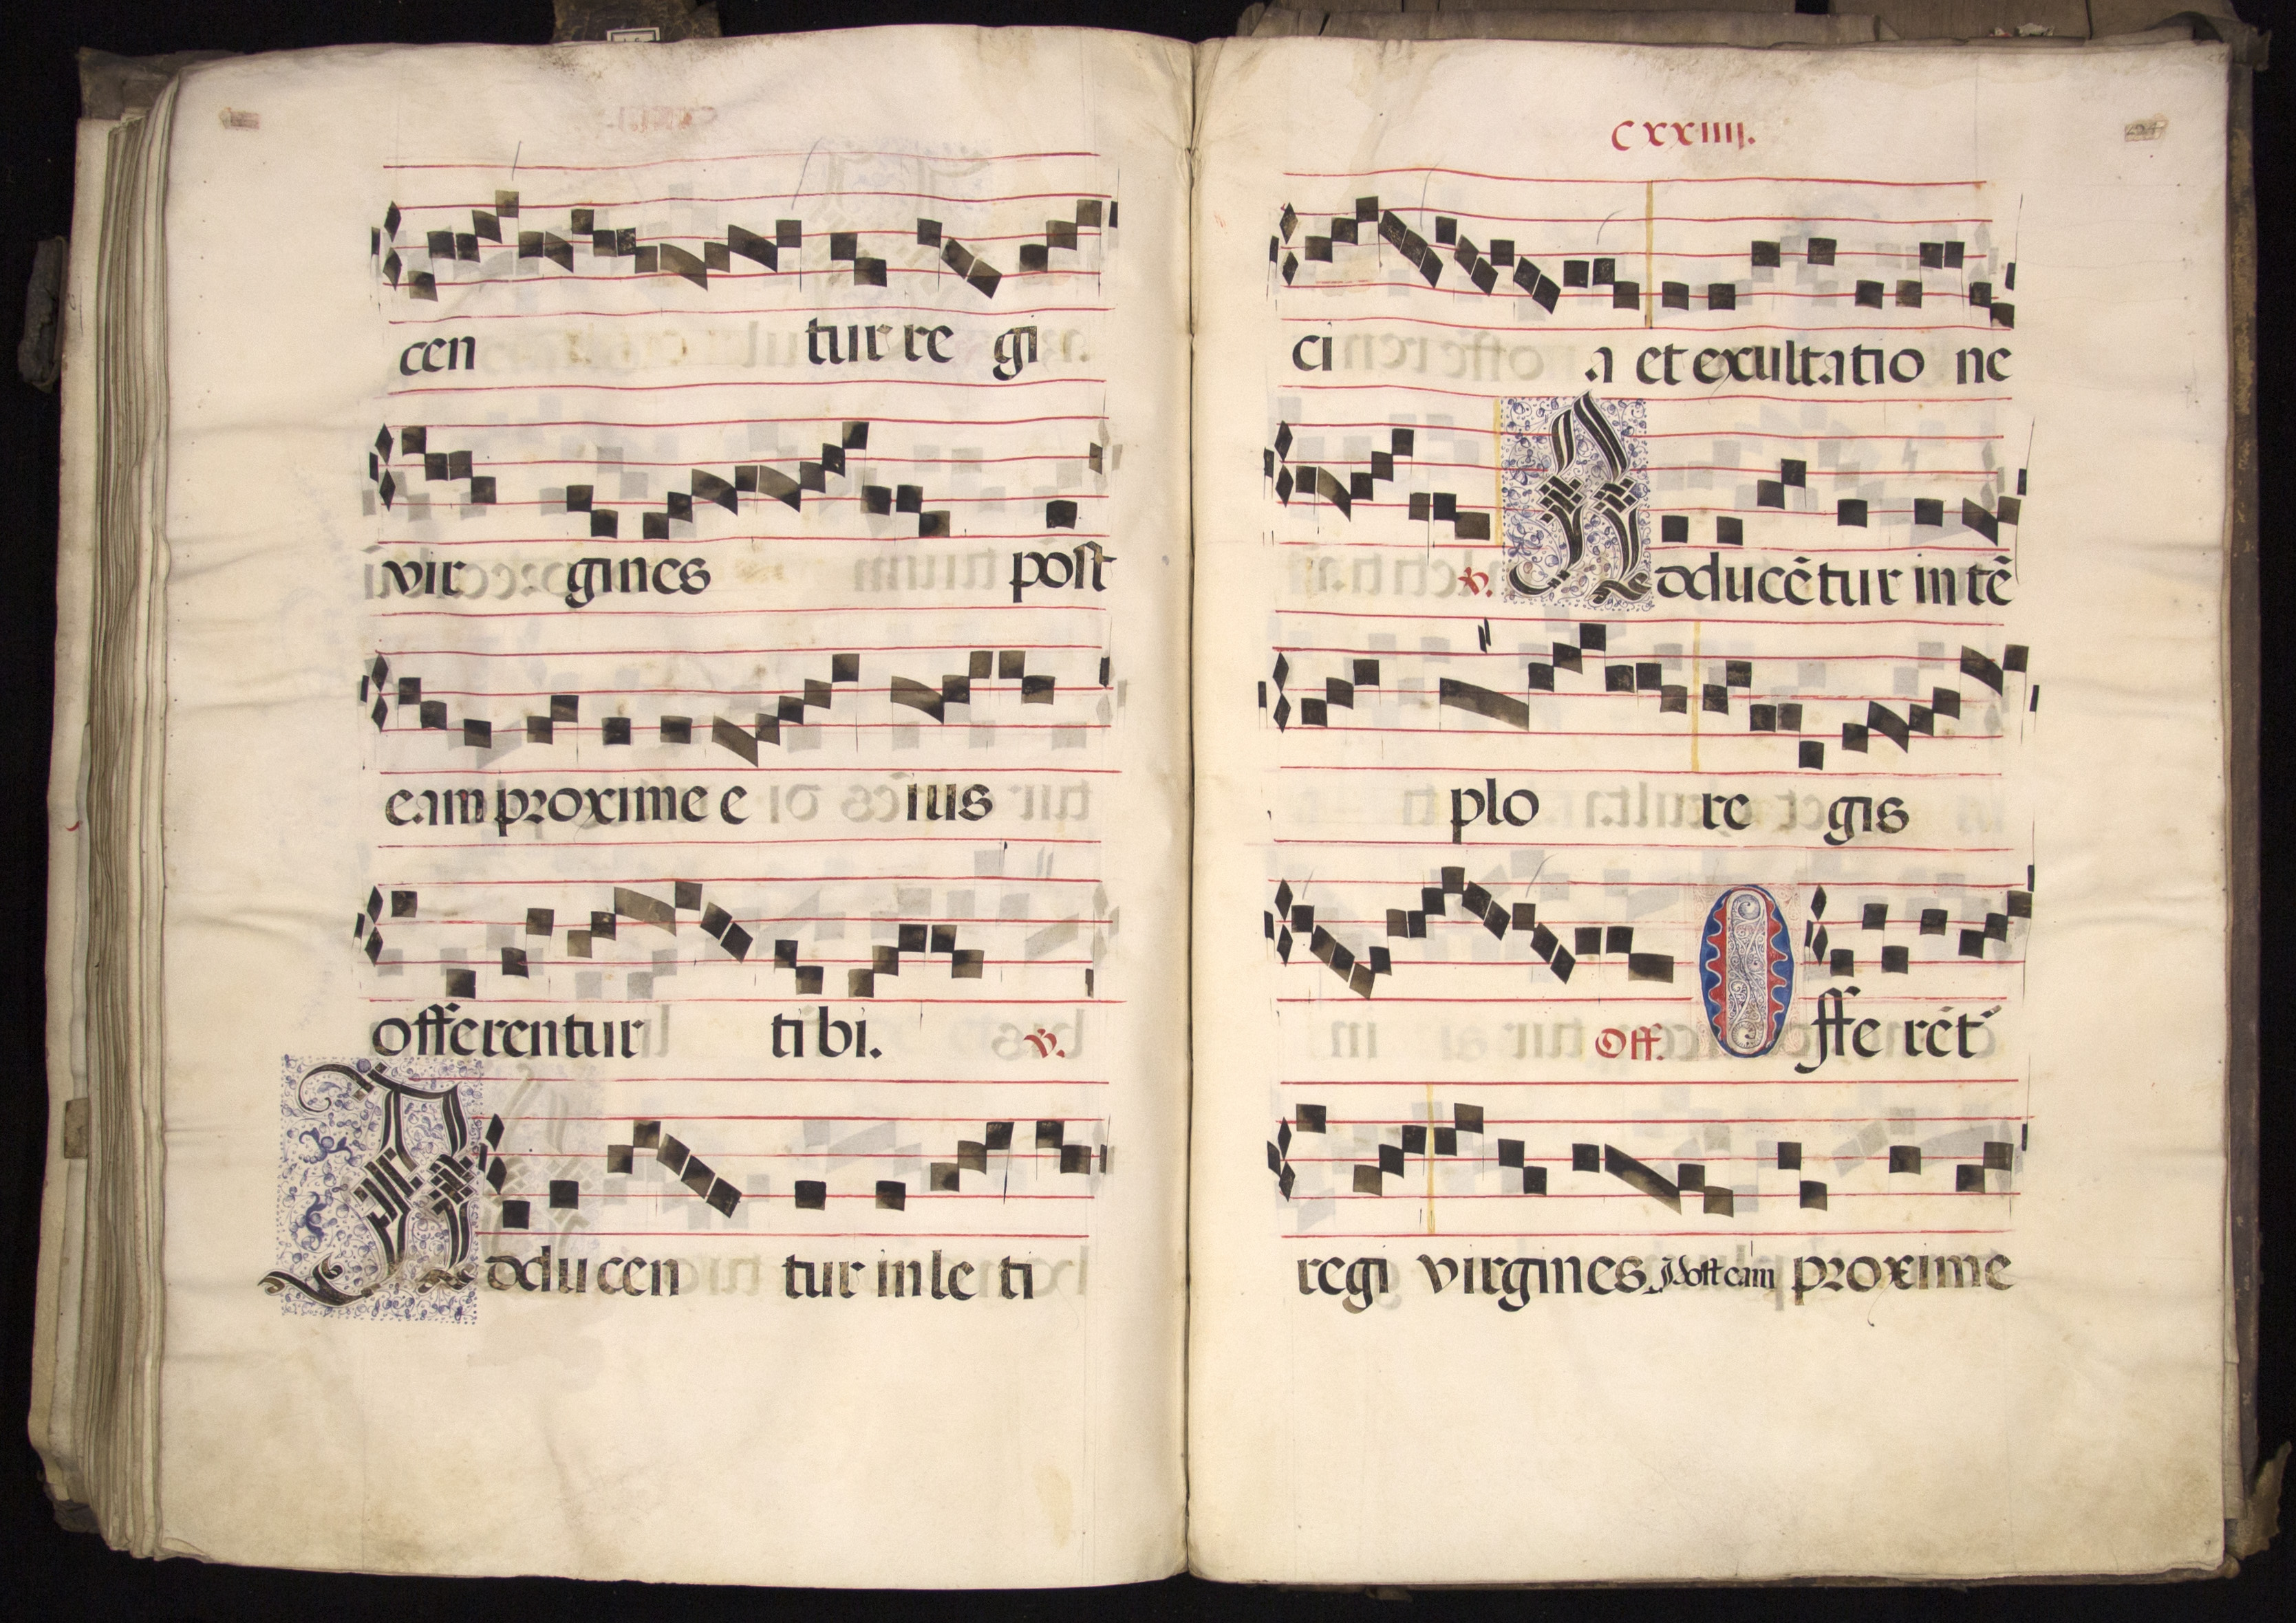 cen tur re gi
vir gines post
eam proxime e ius
offerentur ti bi. v.
Adducen tur in le ti
cxxiiii.
ci a et exultatio ne
v. Adducētur in tē
plo re gis
Off. Offe rēt᷒
regi virgines. Post eam proxime